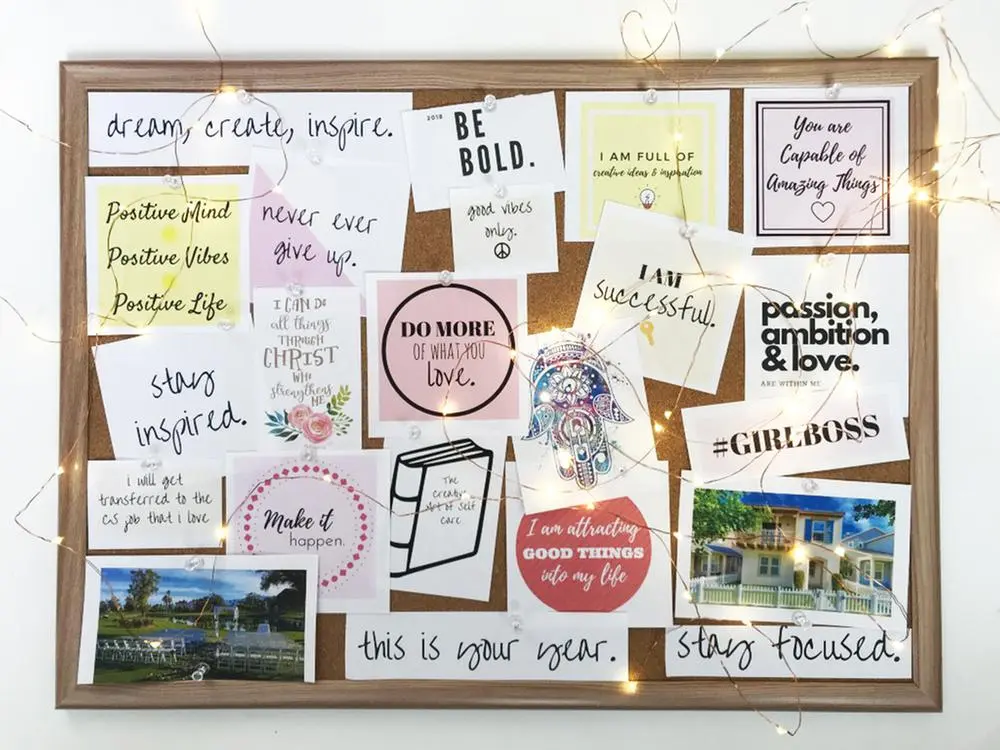 dream, create, inspire.
2018
BE
BOLD.
I AM FULL OF
creative ideas & inspiration
You are
Capable of
Amazing Things
Positive Mind
Positive Vibes
Positive Life
never ever
give up.
good vibes
only.
I AM
successful.
passion,
ambition
& love.
ARE WITHIN ME
I CAN DO
all things
THROUGH
CHRIST
WHO
strengthens
ME
DO MORE
OF WHAT YOU
love.
stay
inspired.
#GIRLBOSS
i will get
transferred to the
CS job that i love
Make it
happen.
The
Art of Self
Care
I am attracting
GOOD THINGS
into my life
this is your year.
stay focused.